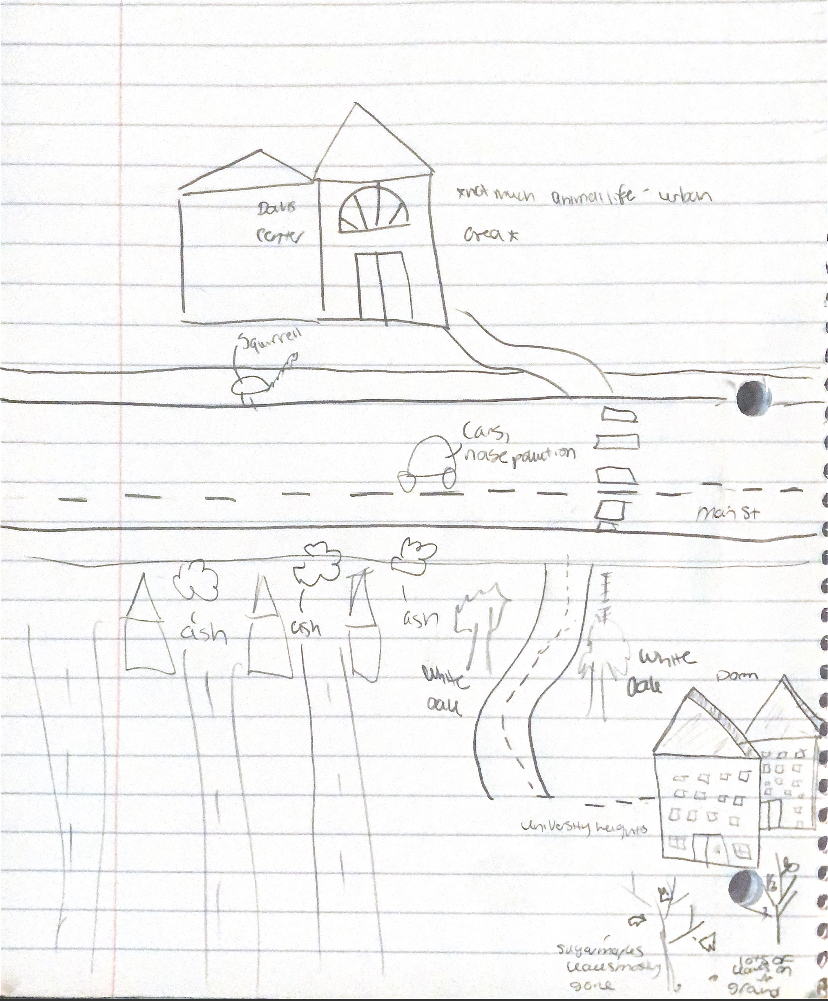 *not much animal life - urban
area*
Davis
Center
Squirrell
Cars,
noise pollution
main st
ash
ash
ash
White
oak
White
oak
Dorm
University heights
sugar maples
leaves mostly
gone
lots of
leaves on
ground